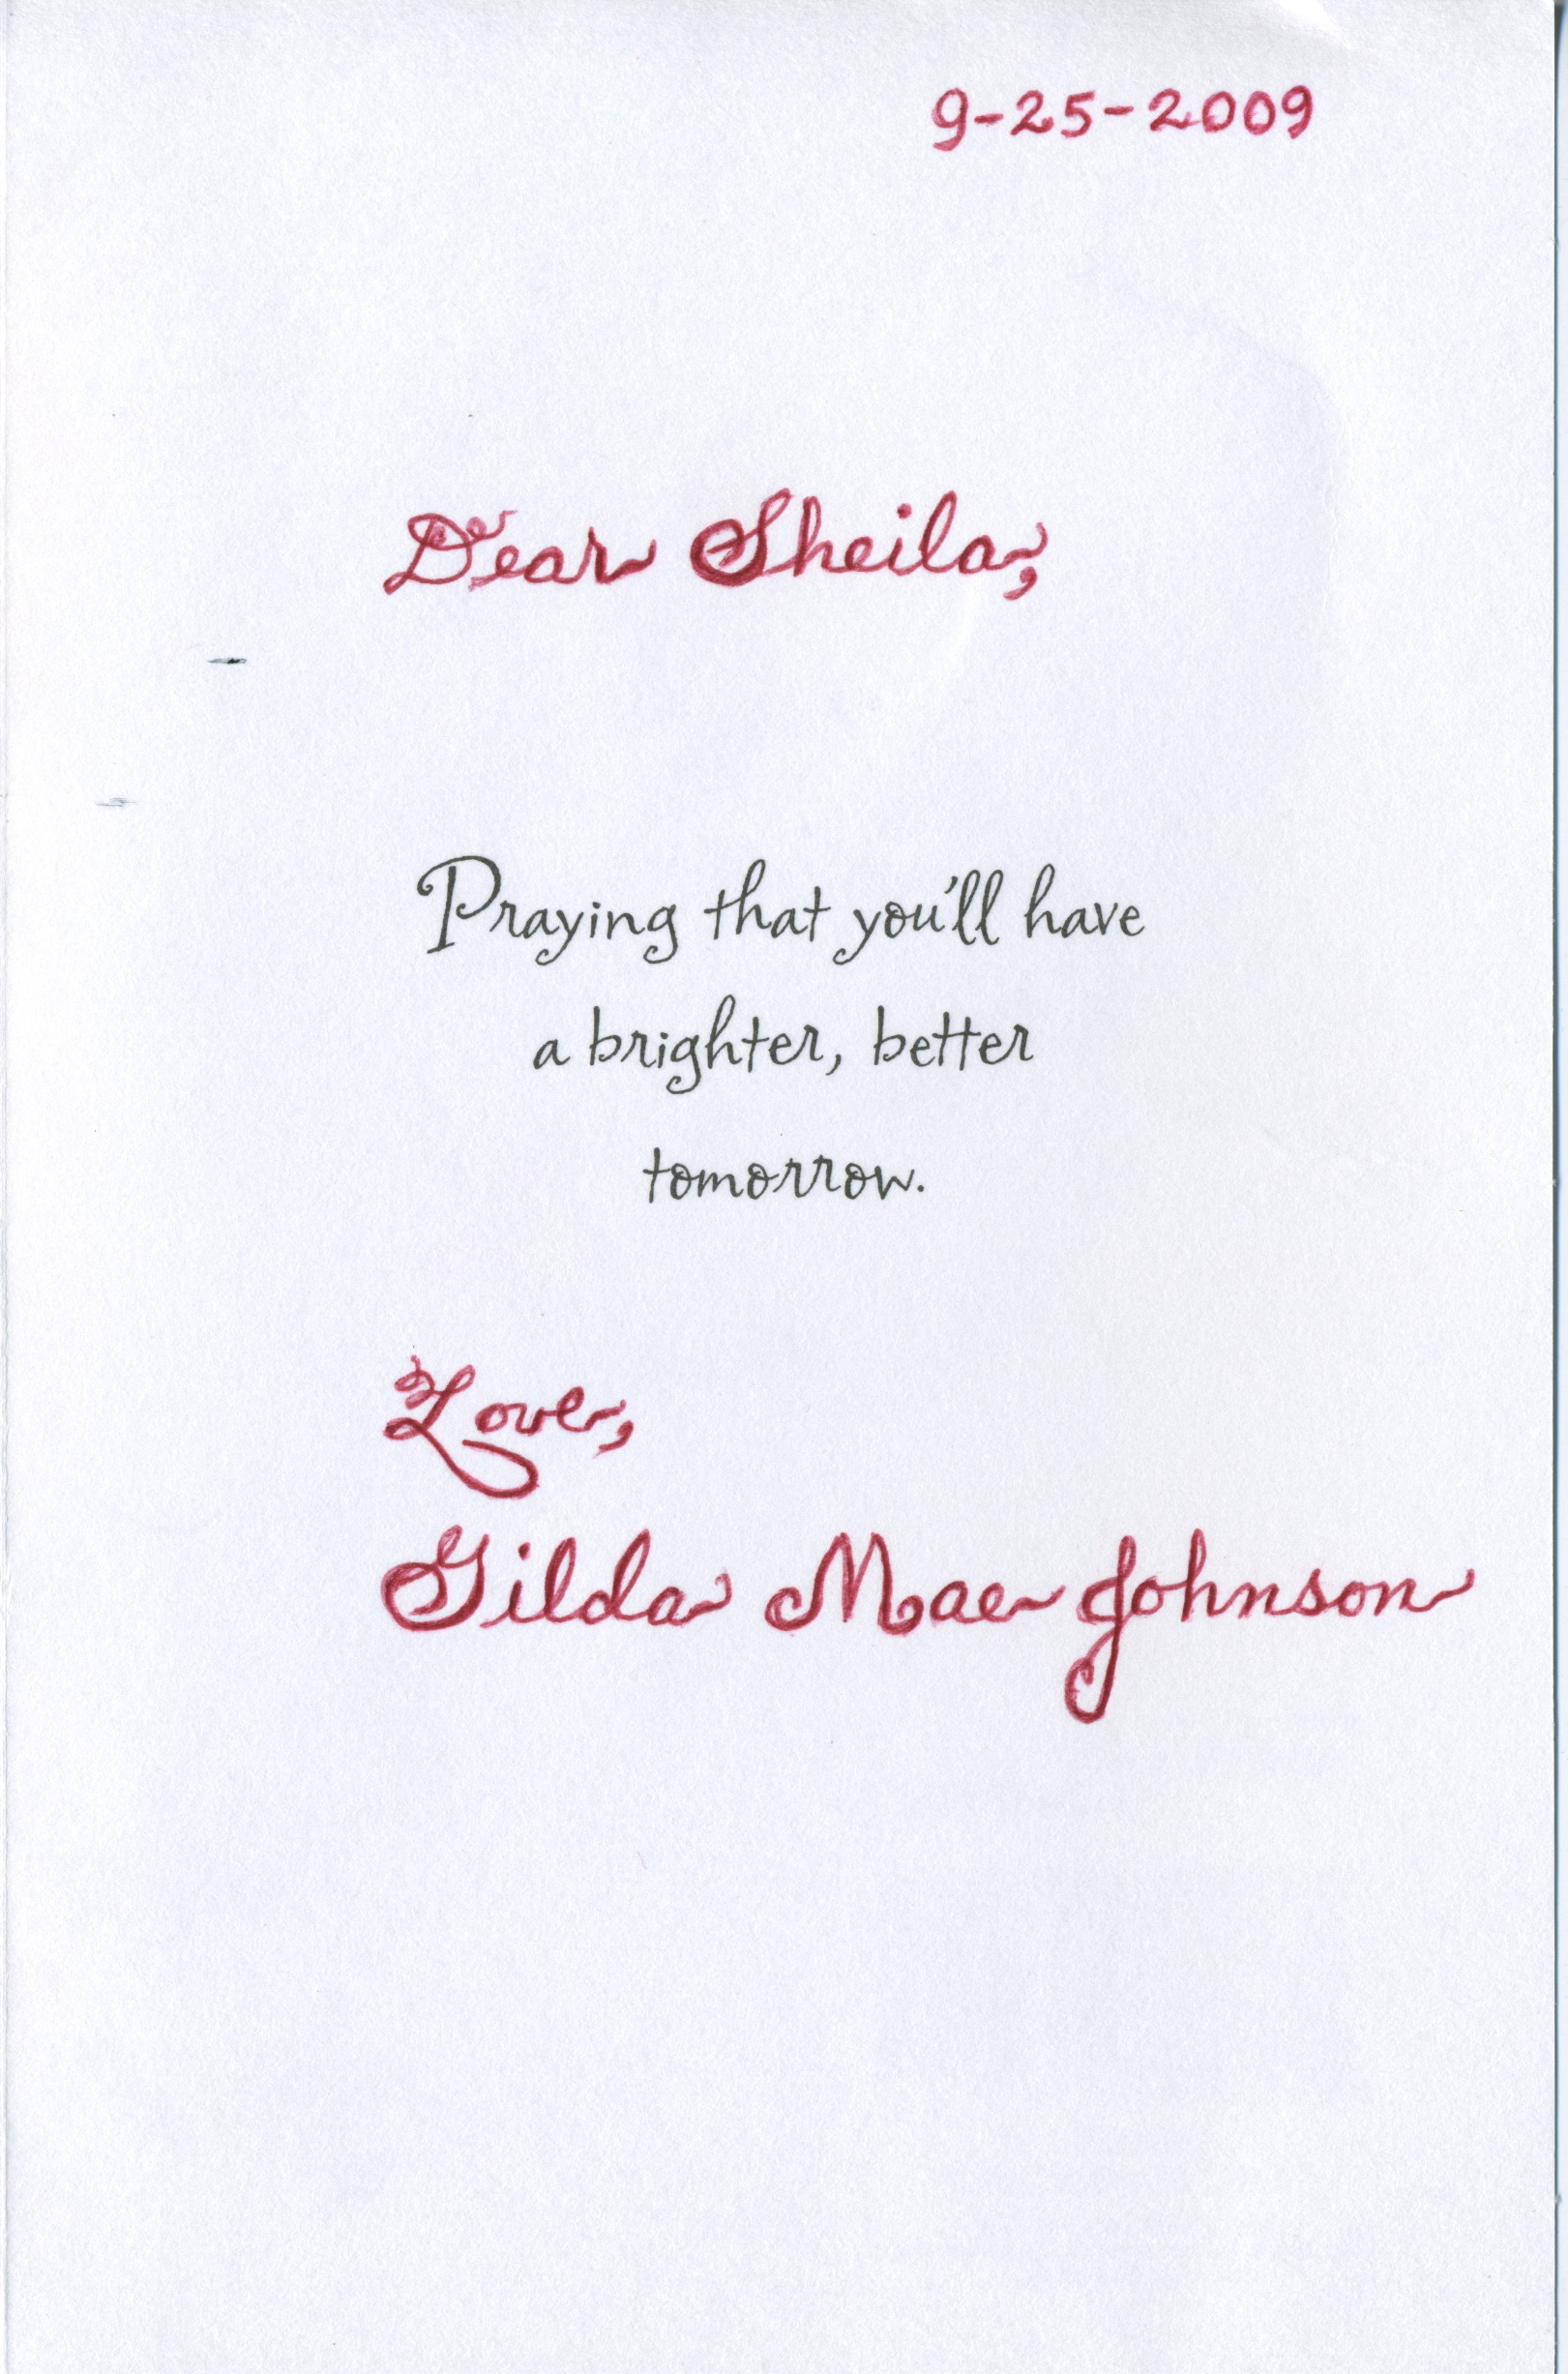 9-25-2009
Dear Sheila,
Praying that you'll have
a brighter, better
tomorrow.
Love,
Gilda Mae Johnson